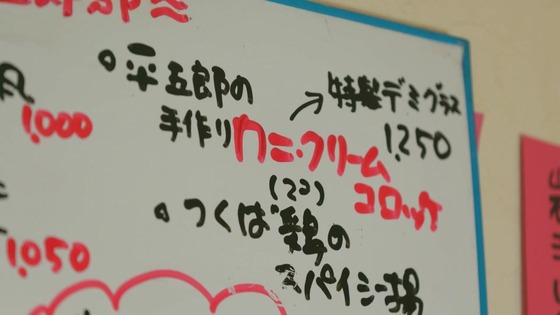 平五郎の
手作りカニ・クリーム
コロッケ
(2コ)
特製デミグラス
1,250
つくば鶏の
スパイシー揚
1,000
1,050